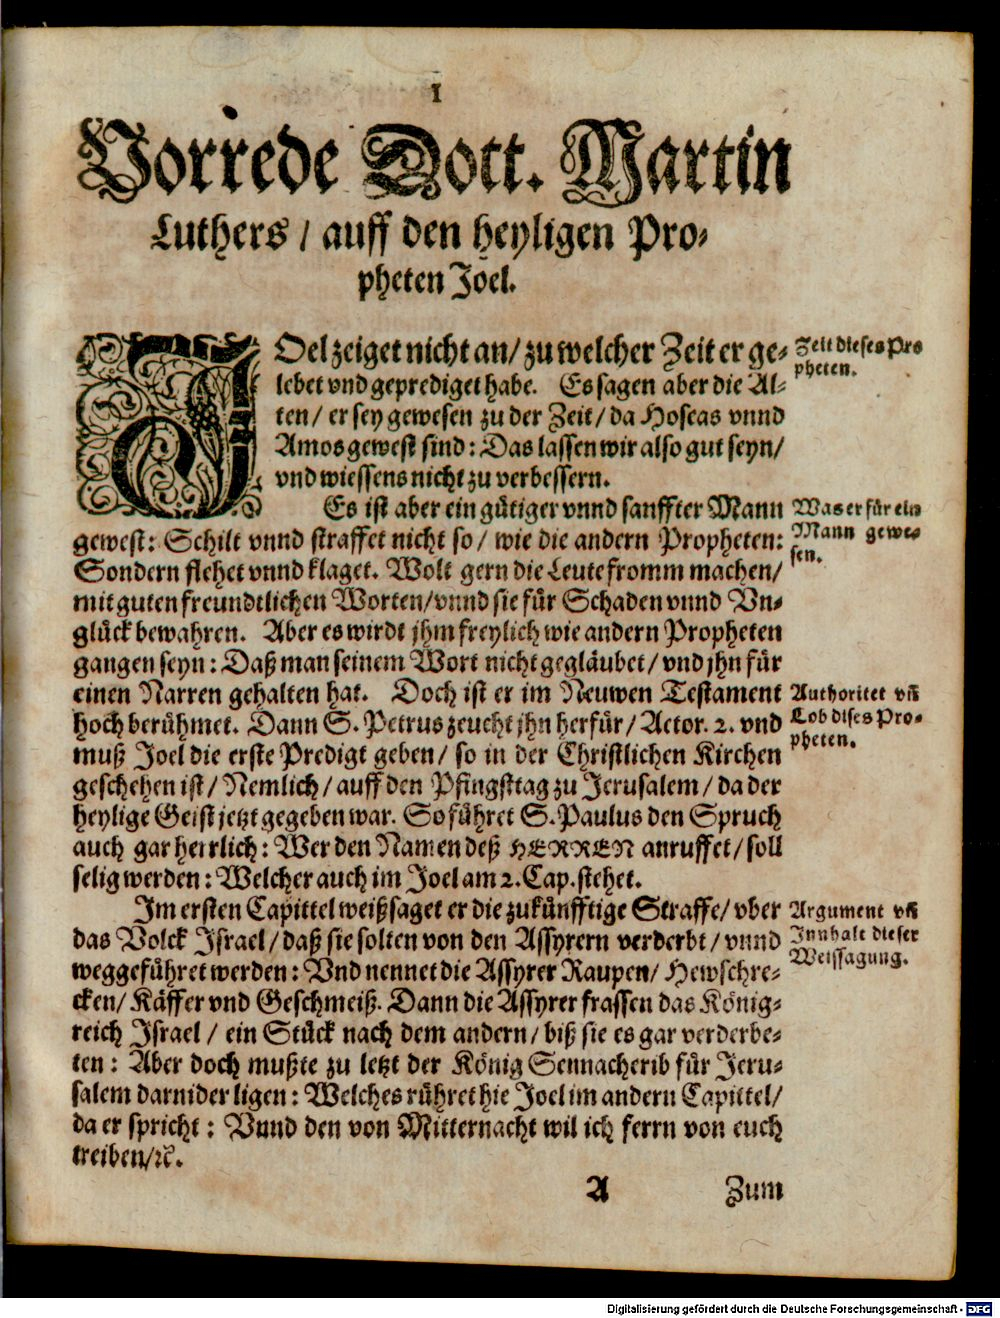 1
Vorrede Dott. Martin
Luthers / auff den heyligen Pro-
pheten Joel.
JOel zeiget nicht an / zu welcher Zeit er ge-
lebet vnd geprediget habe. Es sagen aber die Al-
ten / er sey gewesen zu der Zeit / da Hoseas vnnd
Amos gewest sind: Das lassen wir also gut seyn /
vnd wiessens nicht zu verbessern.
Zeit dieses Pro
pheten.
Es ist aber ein gütiger vnnd sanffter Mann
gewest: Schilt vnnd straffet nicht so / wie die andern Propheten:
Sondern flehet vnnd klaget. Wolt gern die Leute fromm machen /
mit guten freundtlichen Worten / vnnd sie für Schaden vnnd Vn-
glück bewahren. Aber es wirdt jhm freylich wie andern Propheten
gangen seyn: Daß man seinem Wort nicht gegläubet / vnd jhn für
einen Narren gehalten hat. Doch ist er im Neuwen Testament
hoch berühmet. Dann S. Petrus zeucht jhn herfür / Actor. 2. vnd
muß Joel die erste Predigt geben / so in der Christlichen Kirchen
geschehen ist / Nemlich / auff den Pfingsttag zu Jerusalem / da der
heylige Geist jetzt gegeben war. So führet S. Paulus den Spruch
auch gar herrlich: Wer den Namen deß HERREN anruffet / soll
selig werden: Welcher auch im Joel am 2. Cap. stehet.
Was er für ein
Mann gewe-
sen.
Authoritet vñ
Lob dises Pro-
pheten.
Im ersten Capittel weißsaget er die zukünfftige Straffe / vber
das Volck Israel / daß sie solten von den Assyrern verderbt / vnnd
weggeführet werden: Vnd nennet die Assyrer Raupen / Hewschre-
cken / Käffer vnd Geschmeiß. Dann die Assyrer frassen das König-
reich Israel / ein Stück nach dem andern / biß sie es gar verderbe-
ten: Aber doch mußte zu letzt der König Sennacherib für Jeru-
salem darnider ligen: Welches rühret hie Joel im andern Capittel /
da er spricht: Vnnd den von Mitternacht wil ich ferrn von euch
treiben / ꝛc.
Argument vñ
Innhalt dieser
Weissagung.
A Zum
Digitalisierung gefördert durch die Deutsche Forschungsgemeinschaft - DFG